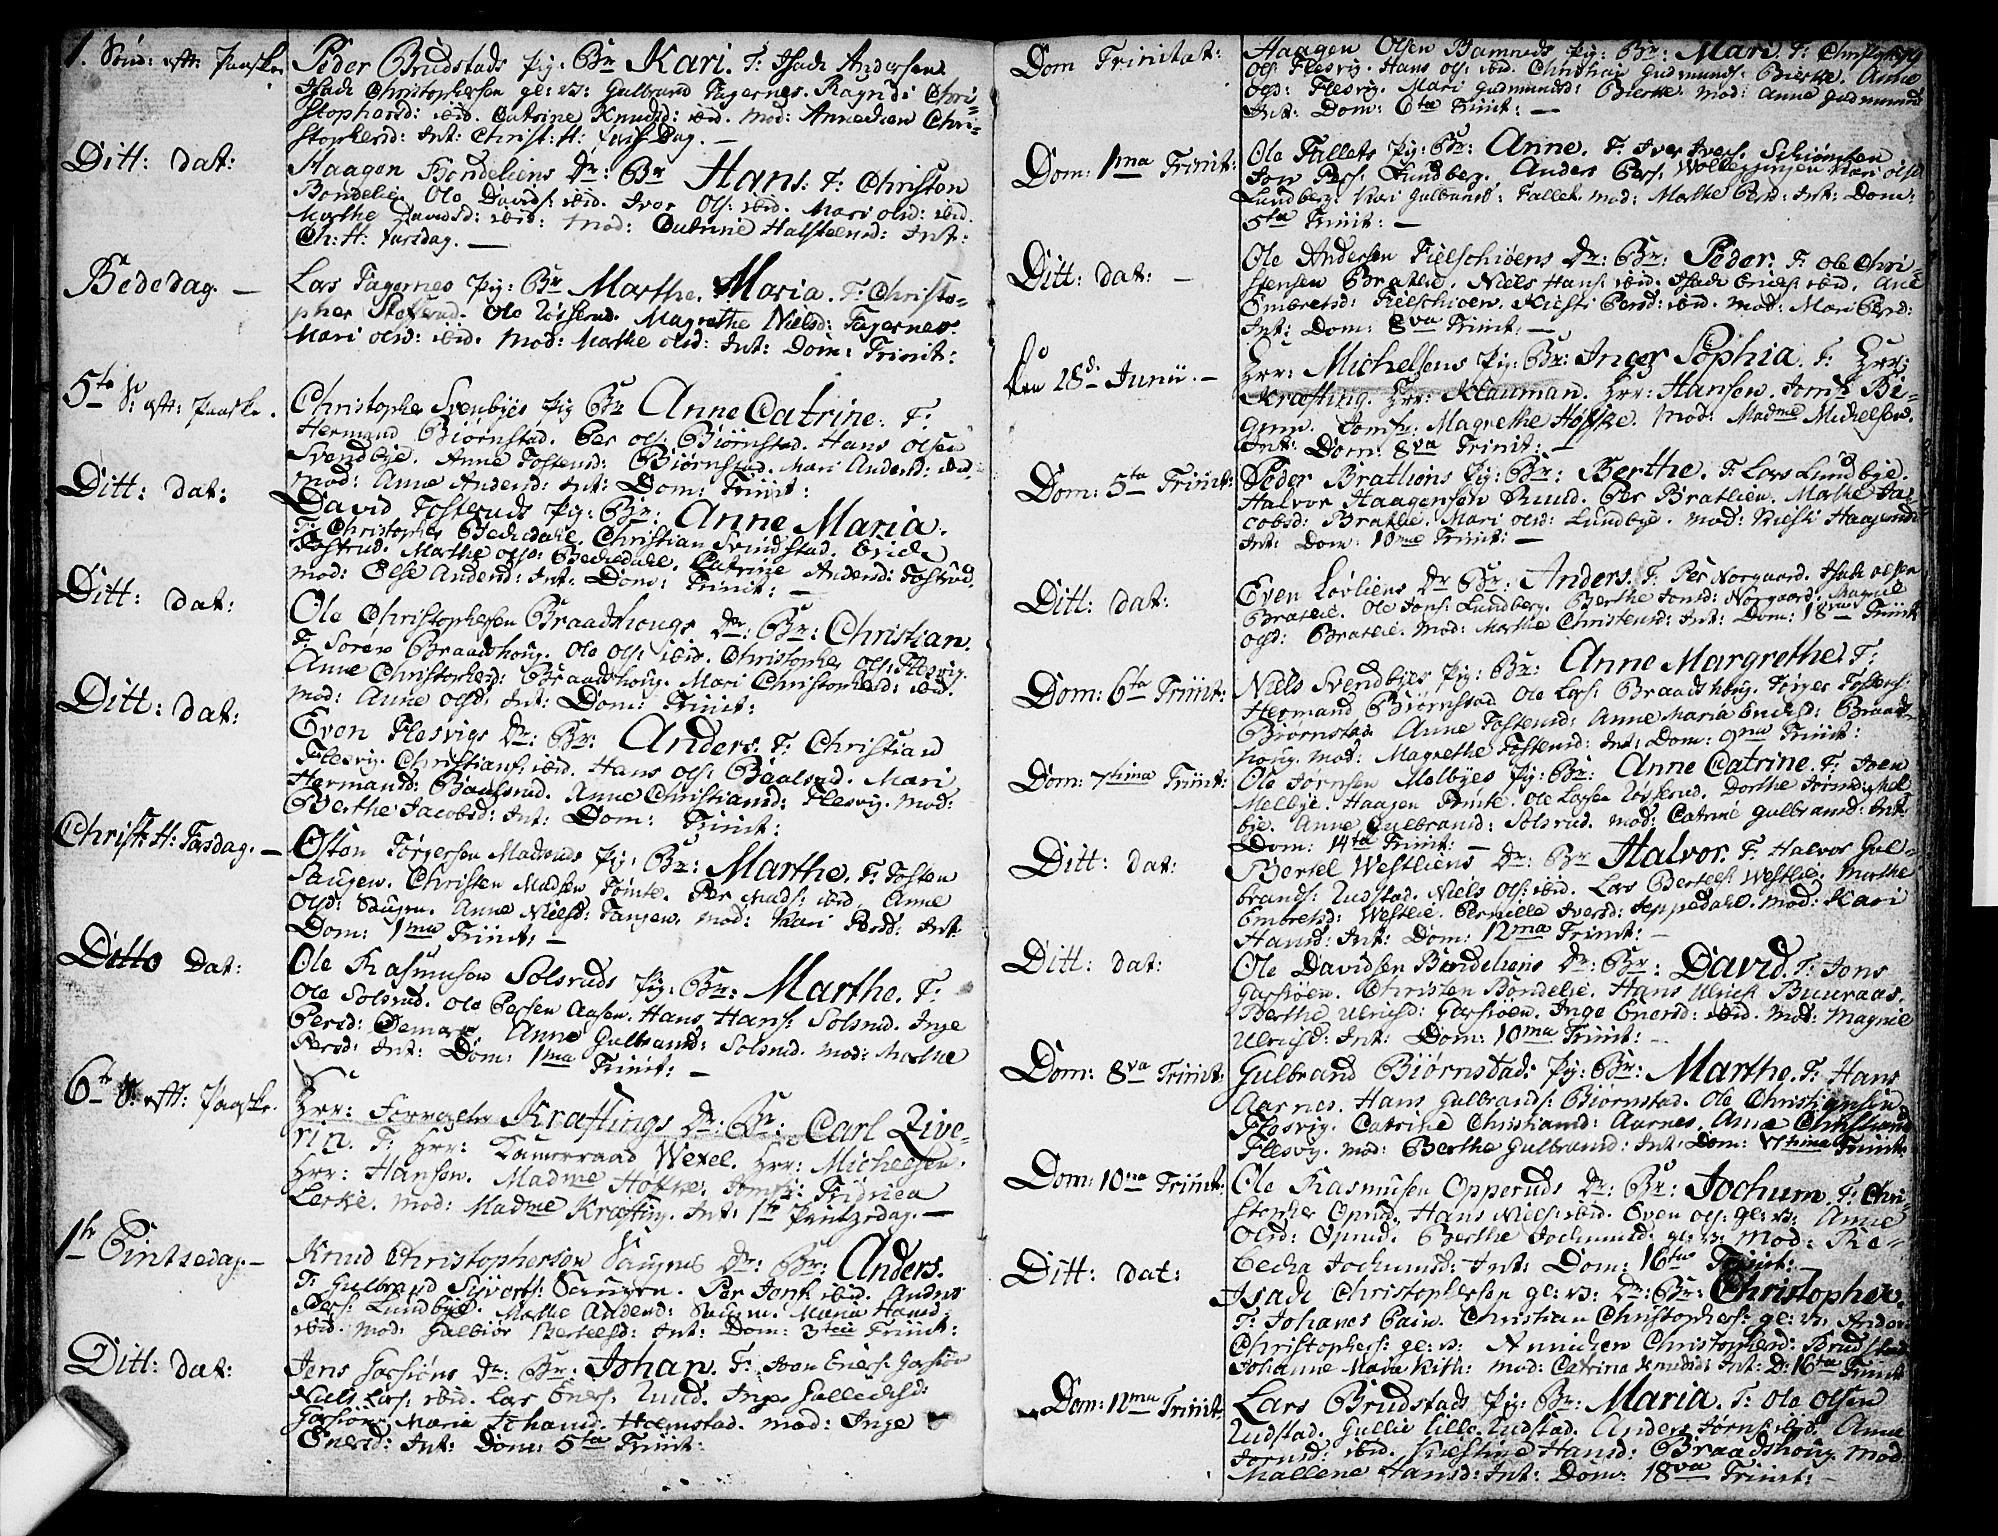 1. Sønd: eft: Paaske.
Peder Brudstads Pig: Br: Kari. F: Isach Andersen
Isach Christophersen ge: v: Gulbrand Fagernes. Ragnd: Chri-
stophersd: ibid. Catrine Knudsd: ibid. Mod: Annechen Chri-
stophersd: Int: Christ: H: farts Dag. —
Ditt: dat:
Haagen Bondeliens Dr: Br Hans. F: Christen
Bondelie. Ole Davids: ibid. Iver Ols: ibid. Mari Olsd: ibid.
Marthe Davidsd: ibid: Mod: Catrine Halsteensd: Int:
Ch: H: farsdag. —
Bededag. —
Lars Fagernes Pig: Br Marthe Maria. F: Christo-
pher Ole Magrethe Nielsd: Fagernes.
Mari Olsd: ibid. Mod: Marthe Olsd: Int: Dom: Trinit:
5te S: eft: Paaske.
Christopher Svenbyes Pig Br Anne Catrine. F:
Hermand Biørnstad. Per Ols: Biørnstad. Hans Olsen
Svendbye. Anne Tostensd: Biørnstad. Mari Andersd: ibid.
Mod: Anne Andersd: Int: Dom: Trinit:
Ditt: dat:
David Fosteruds Pig: Br: Anne Maria.
F: Christopher Bechedahl. Christian Svindstad. Erich
Fostrud. Marthe Olsd: Bechedahl. Catrine Andersd: Fostrud.
Mod: Else Andersd: Int: Dom: Trinit: —
Ditt: dat:
Ole Christophersen Braadhougs Dr: Br: Christian.
F: Søren Braadhoug. Ole Ols: ibid. Christopher Ols: Flesvig.
Anne Christophersd: Braadhoug. Mari Christophersd: ibid.
Mod: Anne Olsd: Int: Dom: Trinit:
Ditt: dat:
Even Flesvigs Dr: Br: Anders. F: Christian
Flesvig. Christians: ibid. Hans Ols: Baalsrud. Mari
Hermansd: Baalsrud. Anne Christiansd: Flesvig. Mod:
Berthe Jacobsd: Int: Dom: Trinit:
Christ: H: Farsdag. —
Osten Torgersen Pig: Br: Marthe. F: Tosten
Saugen. Christen Madsen Tømte. Per Mads: ibid. Anne
Olsd: Saugen. Anne Nielsd: Tangen. Mod: Kari Persd: Int:
Dom: 1ma Trinit: —
Ditto dat:
Ole Rasmusen Solsruds Pig: Br: Marthe. F:
Ole Solsrud. Ole Persen Aasen. Hans Hans: Solsrud. Inge
Persd: Anne Gulbransd: Solsrud. Mod: Marthe
Persd: Int: Dom: 1ma Trinit: —
6te S: eft: Paaske.
Hrr: Kraftings Dr: Br: Carl Zive-
rin. F: Hrr: Kamerraad Wexel. Hrr: Michelsen.
Hrr: Hansen. Madme Holke. Jomfr: Fridrica
Lerke. Mod: Madme Krafting. Int: 1te Pintzedag. —
1te Pintzedag. —
Knud Christophersen Saugens Dr: Br: Anders.
F: Gulbrand Syverts: Saugen. Per Jons: ibid. Anders
Pers: Lundbye. Marthe Andersd: Saugen. Maria Hansd:
ibid. Mod: Gulbiør Bertelsd: Int: Dom: 3tia Trinit:
Ditt: dat:
Jens Garsiøns Dr: Br: Johan. F: Garsiøn
Niels Lars: ibid. Lars Eners: Ruud. Inge
Garsiøn. Maria Johansd: Holmstad. Mod: Inge
Enersd: Int: Dom: 5ta Trinit:
Dom Trinitat:
Haagen Olsen Pig: Br: Mari F: Christopher
Ols: Flesvig. Hans Ols: ibid. Christian Gudmunds: Bierke. Anne
Olsd: Flesvig. Mari Gudmundsd: Bierke. Mod: Anne Gudmunds
Int: Dom: 6ta Trinit: —
Dom: 1ma Trinit:
Ole Fallets Pig: Br: Anne. F: Iver Ivers:
Jon Pers: Lundberg. Anders Pers: Mari Olsd
Lundberg. Kari Gulbransd: Fallet. Mod: Marthe Persd: Int: Dom:
5ta Trinit: —
Ditt: dat: —
Ole Andersen Fielschiøens Dr: Br: Peder. F: Ole Chri-
stensen Bratlie. Niels Hans: ibid. Isach Erichs: ibid. Ane
Embretsd: Fielschiøen. Kirsti Persd: ibid. Mod: Mari Persd:
Int: Dom: 8va Trinit: —
Den 28de Junii. —
Hrr: Michelsens Pig: Br: Inger Sophia. F: Hrr:
Krafting. Hrr: Klauman. Hrr: Hansen. Jomfr: Bi-
Jomfr: Magrethe Holke. Mod: Madme Michelsen.
Int: Dom: 8va Trinit: —
Dom: 5ta Trinit:
Peder Bratliens Pig: Br: Berthe. F: Lars Lundbye.
Halvor Haagensen Ruud. Per Bratlien. Marthe Ja-
cobsd: Bratlie. Mari Olsd: Lundbye. Mod: Kirsti Haagensd:
Int: Dom: 10me Trinit: —
Ditt: dat:
Even Løvliens Dr: Br: Anders. F: Per Norgaard. Isach Olsen
Bratlie. Ole Jons: Lundberg. Berthe Jonsd: Norgaard. Magnil
Olsd: Bratlie. Mod: Marthe Christensd: Int: Dom: 18va Trinit
Dom: 6ta Trinit:
Niels Svendbyes Pig: Br: Anne Margrethe. F:
Hermand Biørnstad. Ole Lars: Braadhoug. Torger Tostens:
Biørnstad. Anne Tostensd: Anne Maria Erichsd: Braad-
houg. Mod: Magrethe Tostensd: Int: Dom: 9na Trinit:
Dom: 7tima Trinit:
Ole Jørnsen Melbyes Pig: Br: Anne Catrine. F: Iven
Melbye. Haagen Ole Larsen Dorthe Jørnsd: Mel-
bye. Anne Gulbransd: Solsrud. Mod: Catrine Gulbransd: Int:
Dom: 14ta Trinit: —
Ditt: dat:
Bertel Westliens Dr: Br Halvor. F: Halvor Gul-
brands: Rudstad. Niels Ols: ibid. Lars Bertels: Westlie. Marthe
Embretsd: Westlie. Pernille Iversd: Jeppedahl. Mod: Kari
Hansd: Int: Dom: 12ma Trinit: —
Ditt: dat:
Ole Davidsen Bondeliens Dr: Br: David. F: Jens
Garsiøen. Christen Bondelie. Hans Ulrich Buuraas.
Berthe Ulrichsd: Garsiøen. Inge Enersd: ibid. Mod: Magnil
Ulrichsd: Int: Dom: 10ma Trinit: —
Dom: 8va Trinit:
Gulbrand Biørnstads Pig: Br: Marthe. F: Hans
Aarnes. Hans Gulbrands: Biørnstad. Ole Christiansen
Flesvig. Catrine Christiansd: Aarnes. Anne Christiansd:
Flesvig. Mod: Berthe Gulbransd: Int: Dom: 17tima Trinit:
Dom: 10ma Trinit:
Ole Rasmusen Opperuds Dr: Br: Jochum. F: Chri-
stopher Oprud. Hans Niels: ibid. Even Ols: ge: v: Anne
Olsd: Oprud. Berthe Jochumsd: ge: v: Mod: Re-
becha Jochumsd: Int: Dom: 16ta Trinit:
Ditt: dat:
Isach Christophersen ge: v: Dr: Br: Christopher.
F: Johanes Christian Christophers: ge: v: Anders
Christophers: ge: v: Annichen Christophersd: Brudstad
Johanne Maria Mod: Catrina Knudsd: Int: D: 16ta Trinit
Dom: 11ma Trinit:
Lars Brudstads Pig: Br: Maria. F: Ole Olsen
Rudstad. Gullic Lille Rudstad. Anders Jørns: ibid. Anne
Jørnsd: ibid. Kirstine Hansd: Braadhoug. Mod:
Mallene Hansd: Int: Dom: 18va Trinit: —